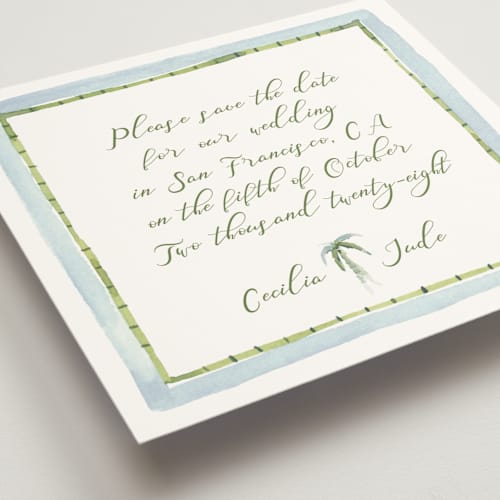 Please save the date
for our wedding
in San Francisco, CA
on the fifth of October
Two thousand twenty-eight
Cecilia Jude